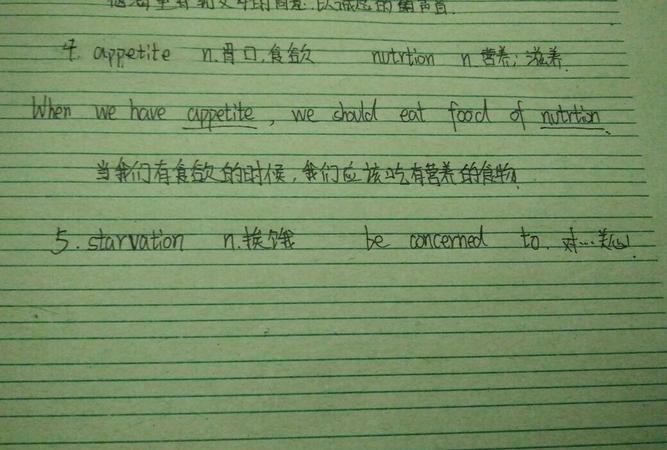 4. appetite n.胃口,食欲 nutrtion n.营养;滋养.
When we have appetite, we should eat food of nutrtion.
当我们有食欲的时候,我们应该吃有营养的食物.
5. starvation n.挨饿 be concerned to. 对…关心.